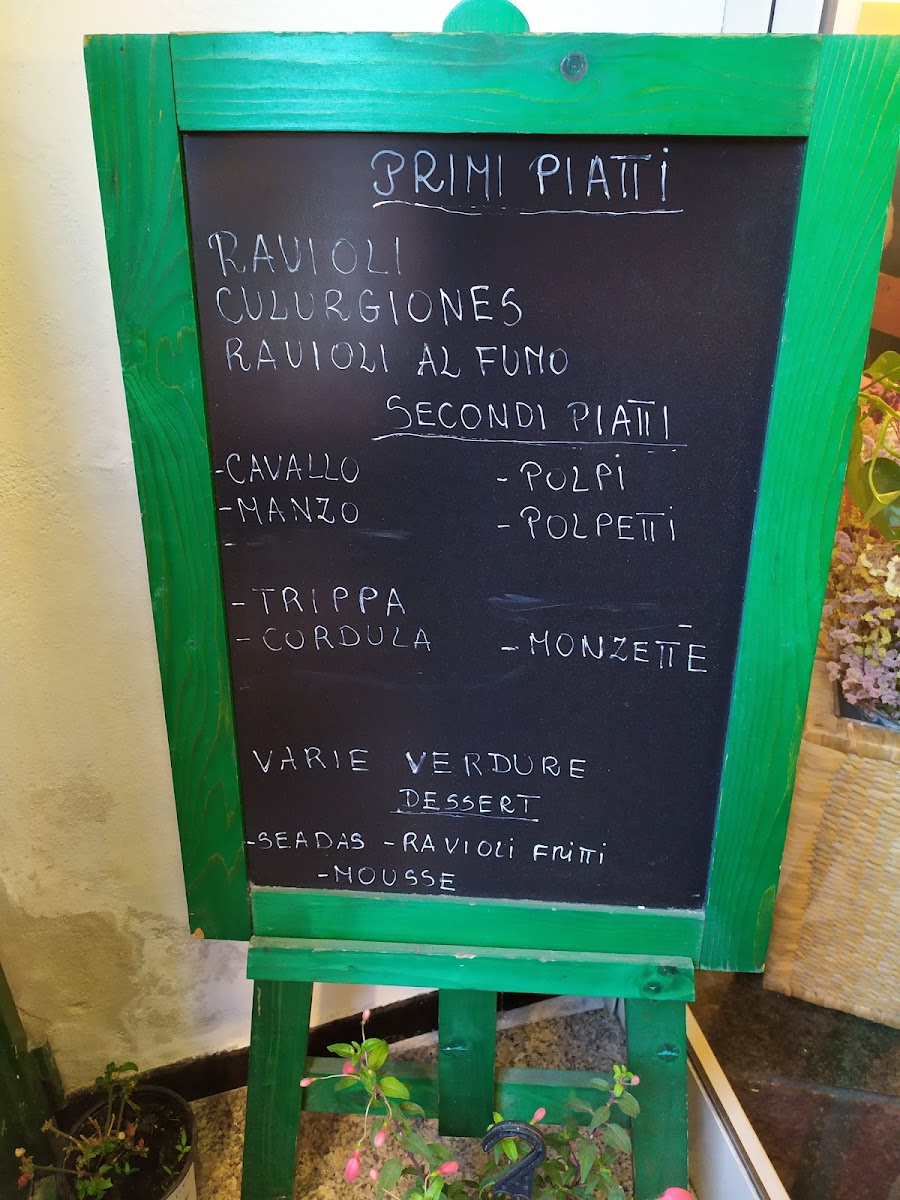 PRIMI PIATTI
RAVIOLI
CULURGIONES
RAVIOLI AL FUMO
SECONDI PIATTI
-CAVALLO
-POLPI
-MANZO
-POLPETTI
-
-TRIPPA
-CORDULA
-MONZETTE
VARIE VERDURE
DESSERT
-SEADAS -RAVIOLI FRITTI
-MOUSSE